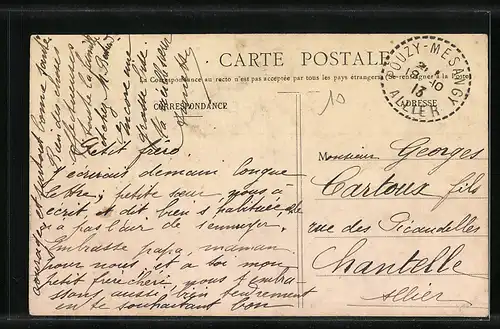 CARTE POSTALE
La Correspondance au recto n'est pas acceptée par tous les pays étrangers (Se renseigner à la Poste)
CORRESPONDANCE
ADRESSE
POUZY-MESANGY
21
9 10
13
ALLIER
10
Petit frère.
J'écrirai demain longue
lettre; petite sœur nous a
écrit, et dit bien s'habituer, elle
a pas l'air de s'ennuyer.
Embrasse papa, maman
pour nous, et à toi mon
petit frère chéri, nous t'embras
sons aussi bien tendrement
en te souhaitant bon
courage, et surtout bonne santé
Encore une
grosse bise
Monsieur Georges
Cartoux fils
rue des
Chantelle
Allier